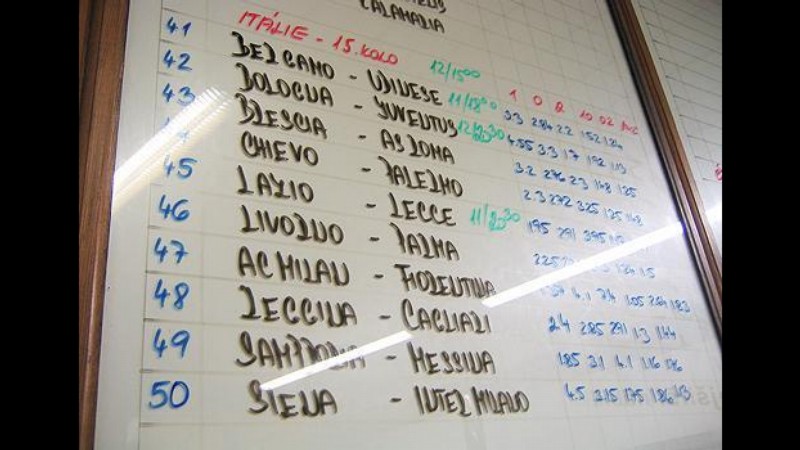 ITÁLIE - 15. KOLO 1 0 2 10 02
41 BERGAMO - UDINESE 12/1500 3.3 2.84 2.2 1.52 1.24
42 BOLOGNA - JUVENTUS 11/18 00 4.55 3.3 1.7 1.92 1.13
43 BRESCIA - AS ROMA 12/20 30 3.2 2.76 2.3 1.48 1.25
CHIEVO - PALERMO 2.3 2.72 3.25 1.25 1.48
45 LAZIO - LECCE 1.95 2.91 3.95
46 LIVORNO - PARMA 11/20 30
47 AC MILAN - FIORENTINA 4.1 7.4 1.05 2.64 1.83
48 REGGINA - CAGLIARI 2.4 2.85 2.91 1.3 1.44
49 SAMPDORIA - MESSINA 1.85 3.1 4.1 1.16 1.76
50 SIENA - INTER MILANO 4.5 3.15 1.75 1.86